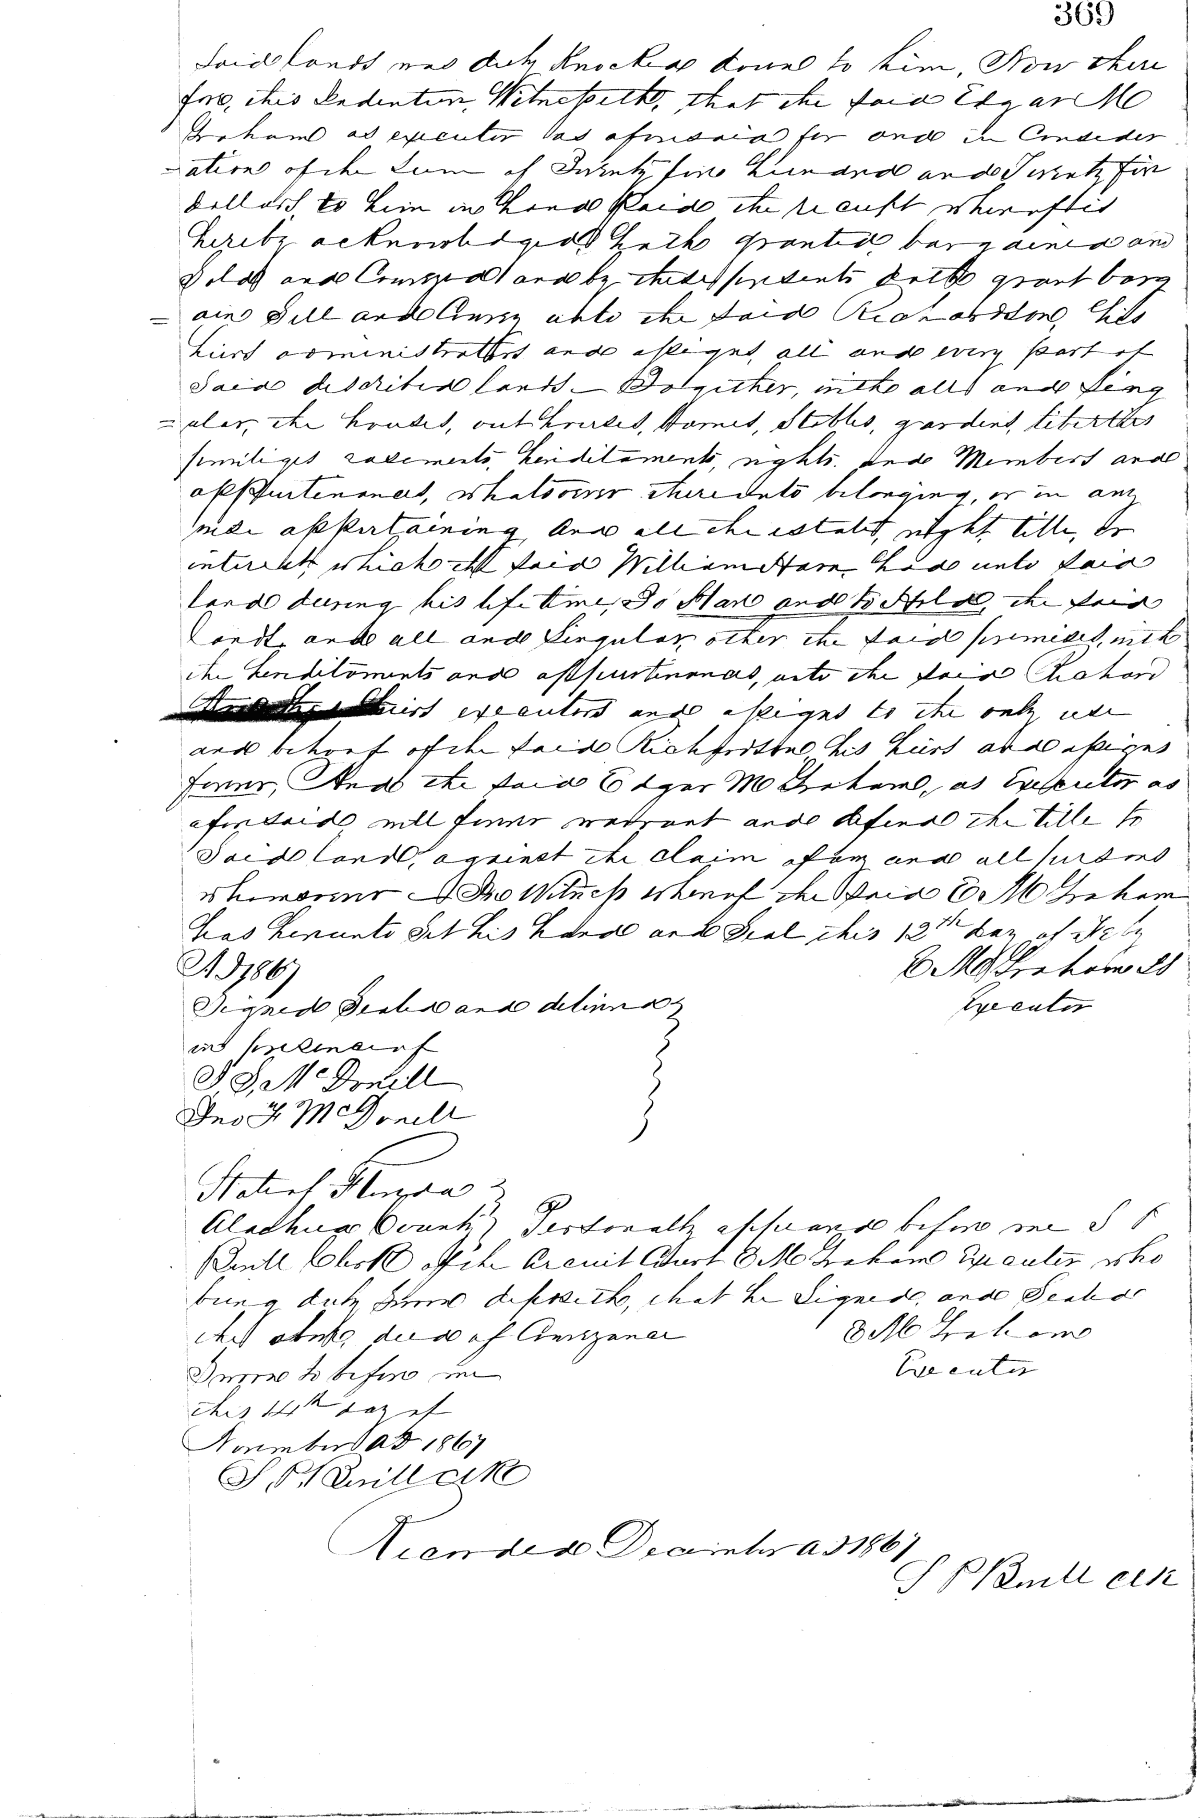 369
Said lands was duly Knocked down to him, Now there
fore, this Indenture, Witnesseth, that the said Edgar M
Graham as executor as aforesaid for and in Consider
-ation of the Sum of Twenty five hundred and Twenty five
dollars, to him in hand Paid the receipt whereof is
hereby acknowledged hath granted bargained and
Sold and Conveyed and by these presents doth grant barg
= ain Sell and Convey unto the said Richardson, his
heirs administrators and assigns, all and every part of
Said described lands. Together, with all and Sing
= ular, the houses, out houses, barnes, Stables, gardens, liberties
priviliges easements, herditaments, rights. and Members and
appurtenances, whatsoever thereunto belonging, or in any
wise appertaining, And all the estate, right, title, or
interest, which the said William had unto said
land during his life time, To Have and to Hold, the said
Lands, and all and Singular, other the said premises, with
the herditaments and appurtenances, unto the said Richard
heirs executors and assigns to the only use
and behoof of the said Richardson his heirs and assigns
forever, And the said Edgar M Graham, as Executor as
aforesaid will forever warrant and defend the title to
Said land, against the claim of any and all persons
whomsoever In Witness whereof the said E. M Graham
has hereunto Set his hand and Seal this 12th day of
A D 1867 E M Graham LS
Signed Sealed and delivered Executor
in presence of
McDonell
Jno McDonell
State of Florida
Alachua County Personally appeared before me S P
Clerk of the Circuit Court E M Graham Executor who
being duly Sworn deposeth, that he Signed, and Sealed
this above deed of Conveyance E M Graham
Sworn to before me Executor
this 14th day of
November AD 1867
S. P. clk
Recorded December AD 1867
S P clk